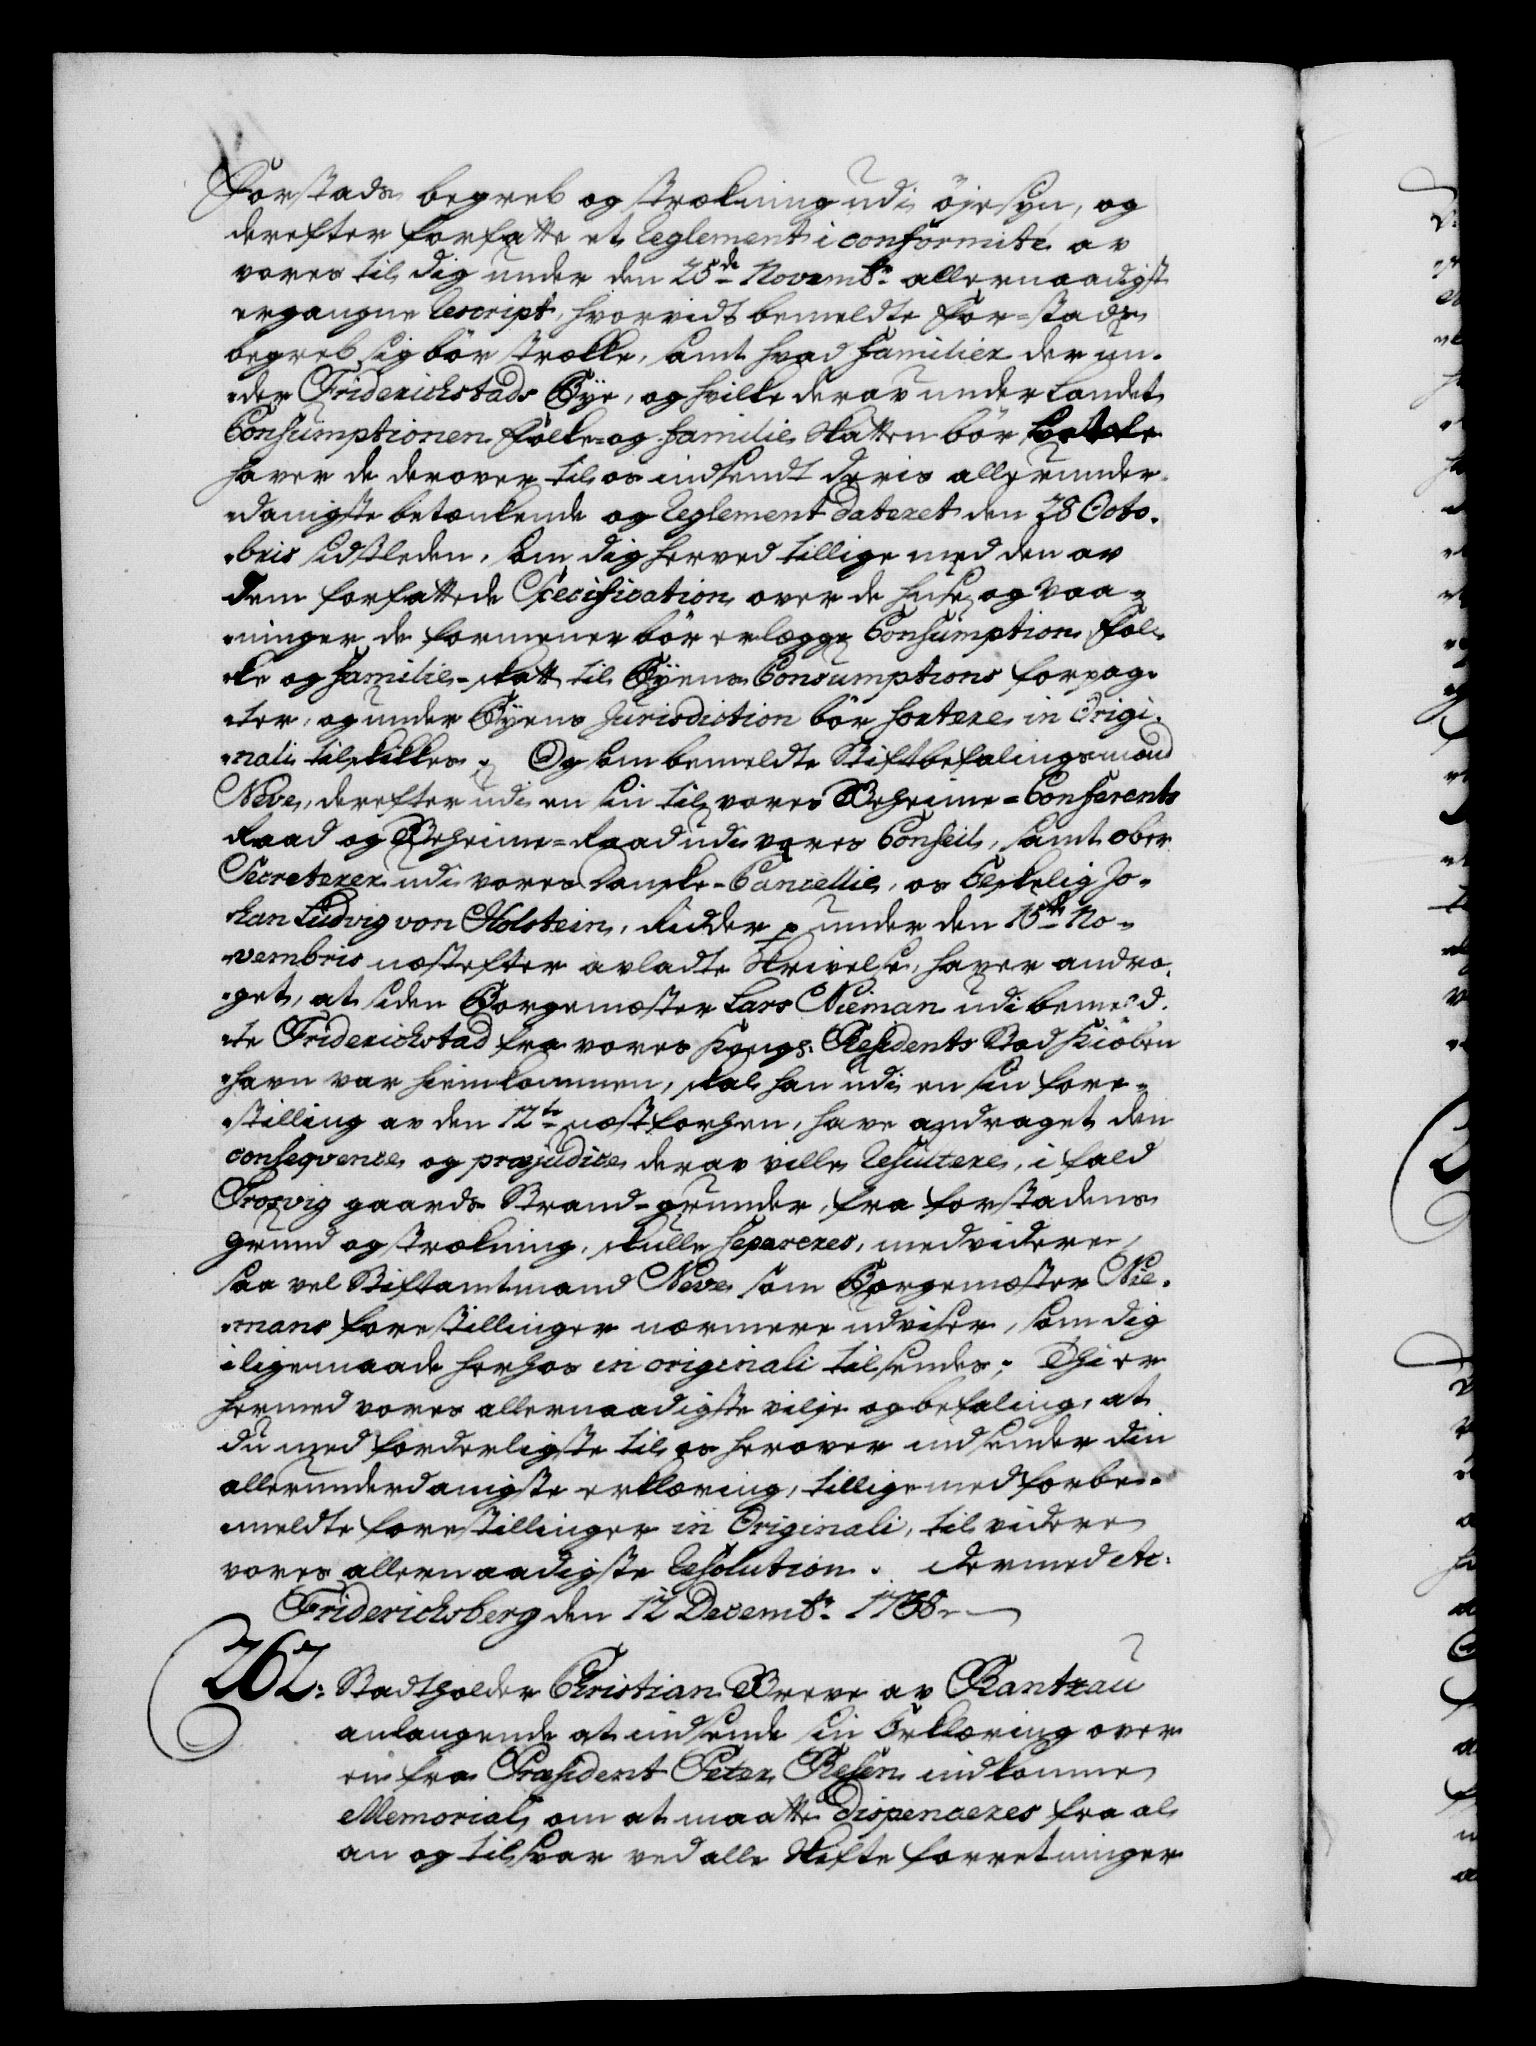 Forstads begreb og strækning udi öjesyn, og
derefter forfatte et Reglement i conformité av
vores til dig under den 25de Novembr. allernaadigst
ergangne Rescript, hvorvidt bemeldte For=stads
begreb sig bör strække, samt hvad Familier der un-
der Friderichstads Bye, og hvilke derav under Landet
Consumptionen Folke- og Familie Skatten bör
haver de derover til os indsendt deris allerunder-
danigste betænkende og Reglement dateret den 28 Octo-
bris sidstleden, som dig herved tillige med den av
dem forfattede Specification over de huse og Vaa-
ninger de formener bör erlægge Consumption, Fol-
ke og Familie-skatt til Byens Consumptions forpag-
ter, og under Byens Jurisdiction bör sortere, in Origi-
nali tilskikkes; Og som bemeldte Stiftbefalingsmand
Neve, derefter udi en sin til vores Geheime=Conferents
Raad og Geheime=Raad udi vores Conseil, samt ober
Secreterer udi vores Danske-Cancellie, os Elskelig Jo-
han Ludvig von Holstein, Ridder p under den 15de No-
vembris næstefter avladte Skrivelse, haver andra-
get, at siden Borgemester Lars Nieman udi bemeld-
te Friderichstad fra vores Kongl. Residents Stad Kiöben
havn var hiemkommen, skal han udi en sin fore-
stilling av den 12te næstforhen, have andraget den
conseqvence og præjudice derav ville Resultere, i fald
Trosvig gaards Strand-grunder, fra forstadens
Grund og strækning, skulle separeres, med videre,
saa vel Stiftamtmand Neve som Borgemester Nie-
mans forestillinger nærmere udviser, som dig
iligemaade herhos in originali tilsendes; Thi er
hermed vores allernaadigste vilje og befaling, at
du med forderligste til os herover indsender din
allerunderdanigste erklæring, tillige med forbe-
meldte forestillinger in Originali, til videre
vores allernaadigste Resolution. Dermed etc.
Friderichsberg den 12 Decembr. 1738.
262. Stadtholder Christian Greve av Rantzau
anlangende at indsende sin Erklæring over
en fra Præsident Peter Resen indkomne
Memorial, om at maatte Dispenceres fra al
an og tilsvar ved alle Skifte forretninger